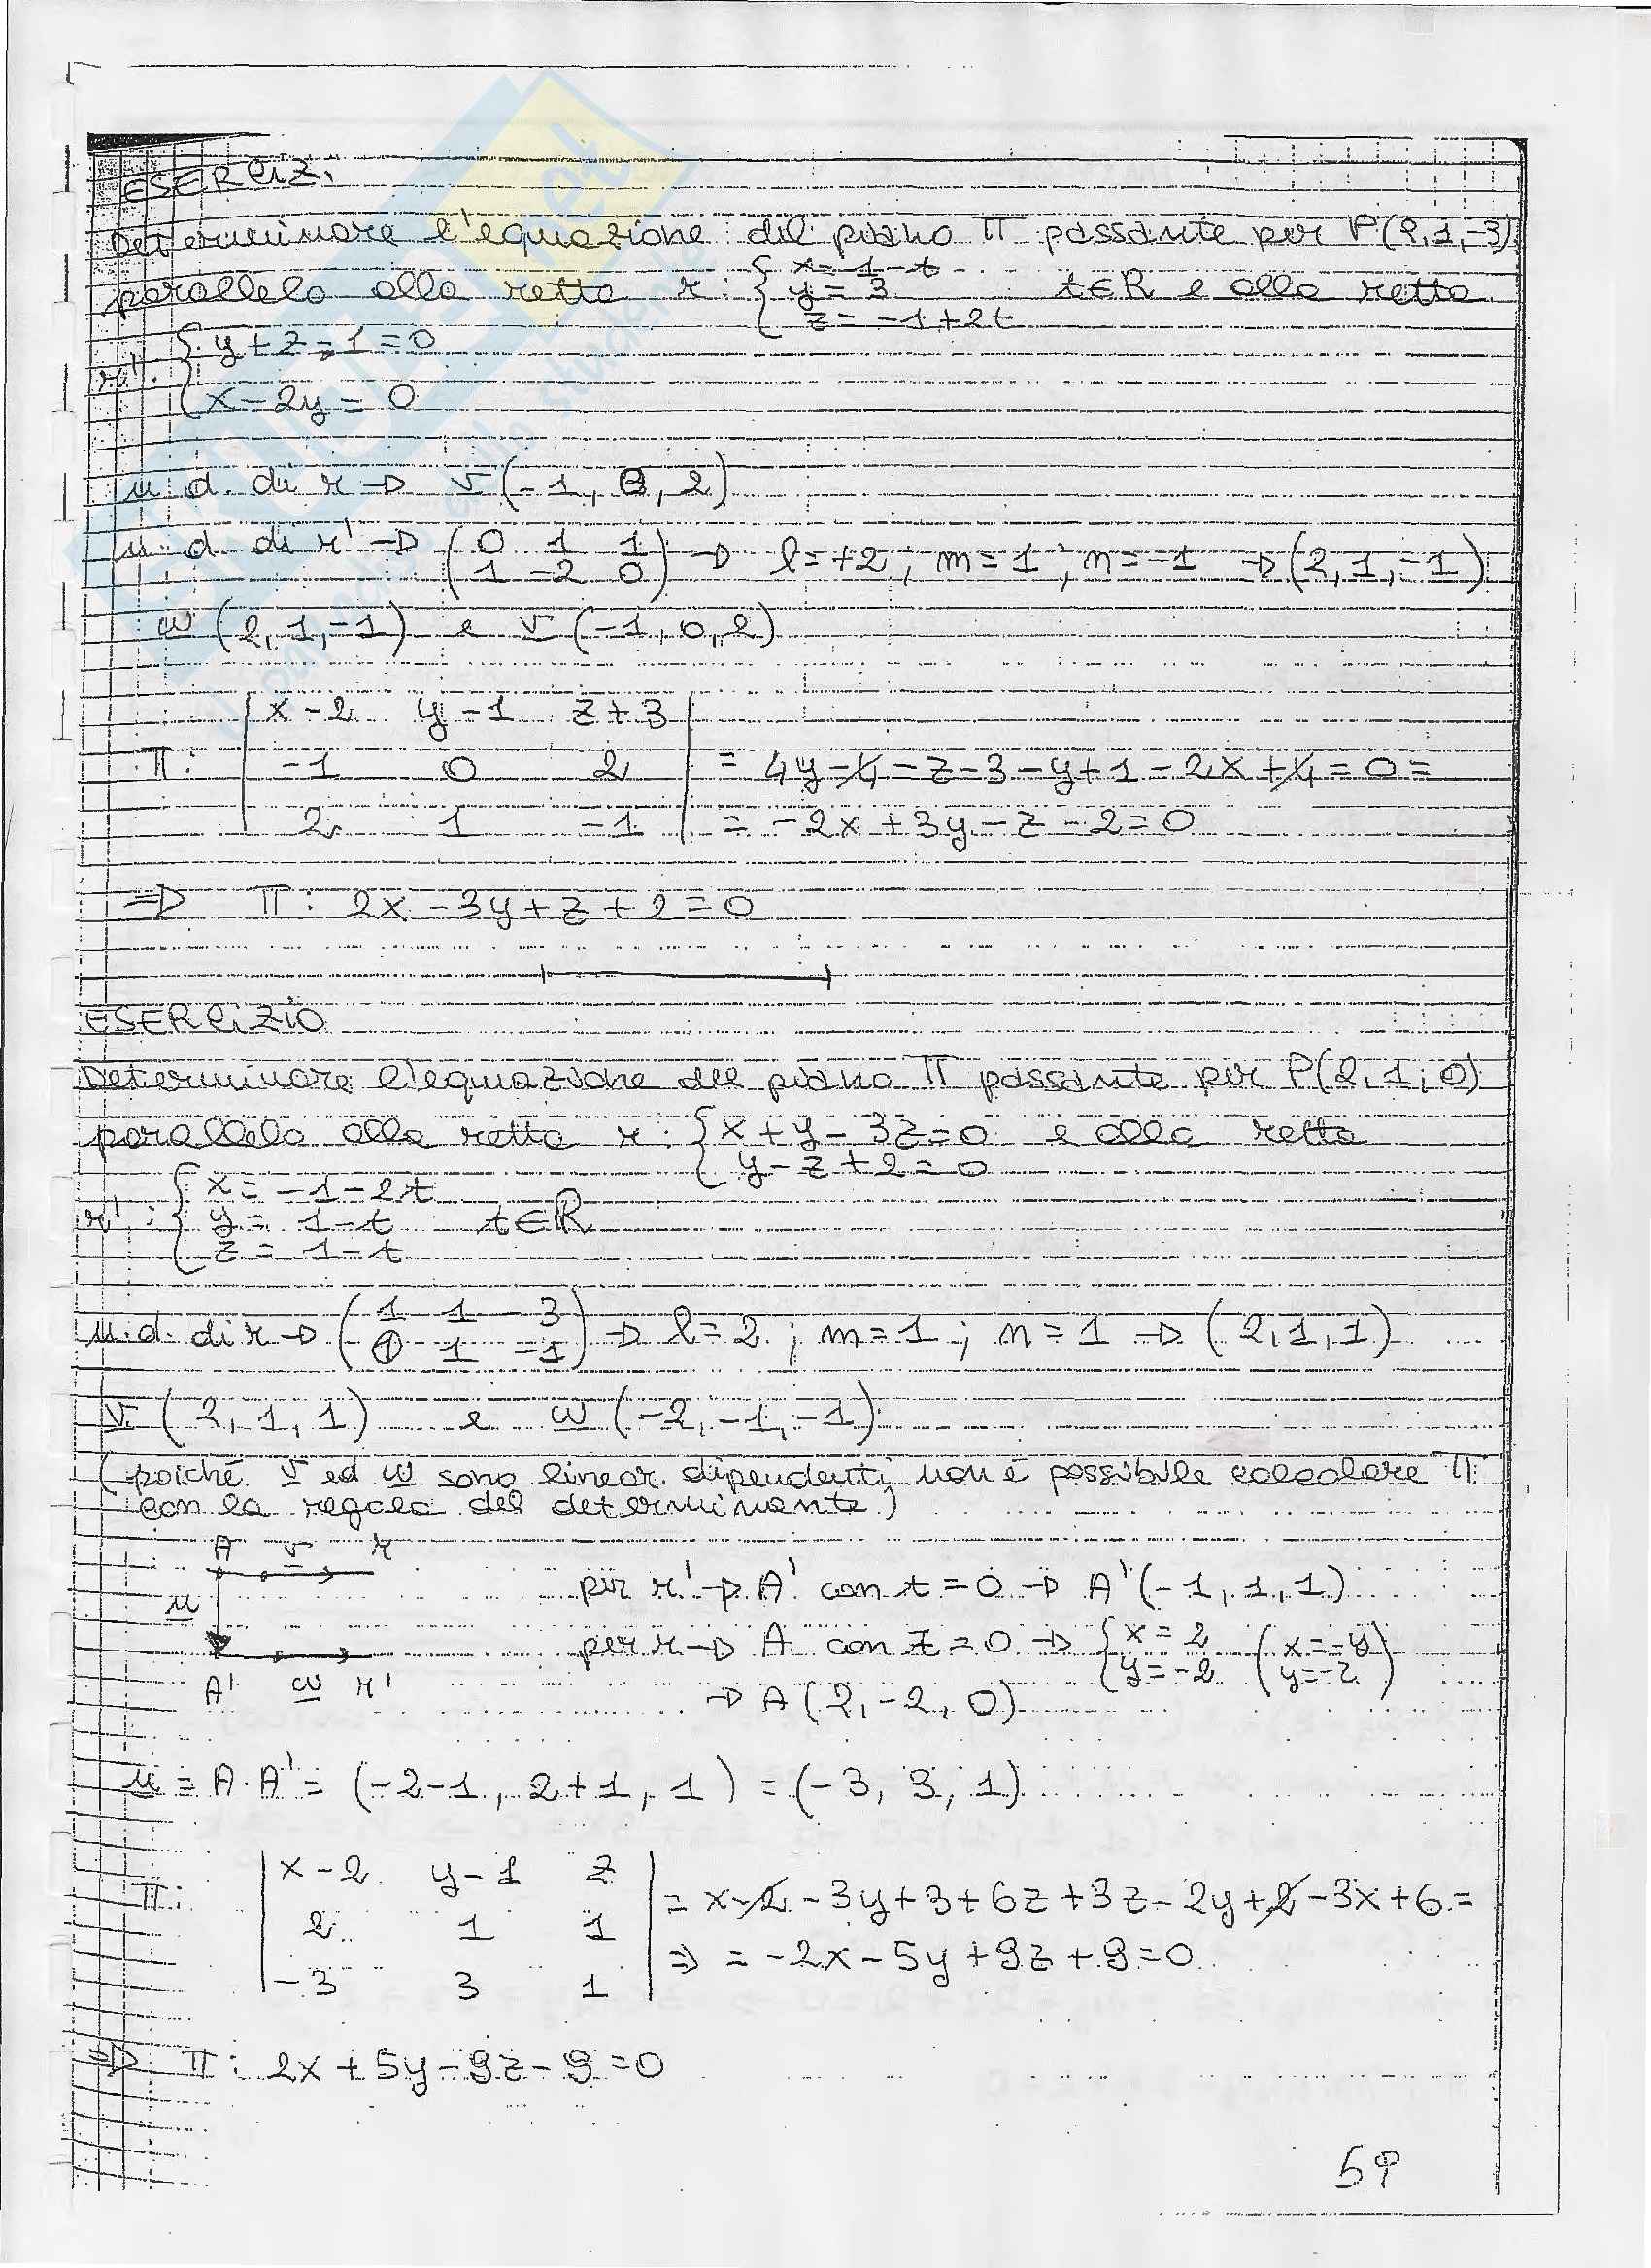 ESERCIZI
Determinare l'equazione del piano π passante per P(2,1,-3)
parallelo alla retta r: { x=1-t
y=3 t∈R e alla retta
z=-1+2t
r': { y+z-1=0
x-2y=0
n.d. di r → v(-1, 0, 2)
n.d. di r' → (0 1 1
1 -2 0) → l=+2; m=1; n=-1 → (2,1,-1)
w(2,1,-1) e v(-1,0,2)
| x-2 y-1 z+3 |
π: | -1 0 2 | = 4y-4-z-3-y+1-2x+4=0=
| 2 1 -1 | = -2x+3y-z-2=0
⇒ π: 2x-3y+z+2=0
ESERCIZIO
Determinare l'equazione del piano π passante per P(2,1,0)
parallelo alla retta r: { x+y-3z=0 e alla retta
y-z+2=0
r': { x=-1-2t
y=1-t t∈R
z=1-t
n.d. di r → (1 1 -3
0 1 -1) → l=2; m=1; n=1 → (2,1,1)
v(2,1,1) e w(-2,-1,-1)
(poiché v ed w sono linear. dipendenti non è possibile calcolare π
con la regola del determinante)
A v r
per r' → A' con t=0 → A'(-1,1,1)
u
per r → A con z=0 → { x=2 (x=-y
y=-2 y=-2)
A' w r'
→ A(2,-2,0)
u = A·A' = (-2-1, 2+1, 1) = (-3, 3, 1)
| x-2 y-1 z |
π: | 2 1 1 | = x-2-3y+3+6z+3z-2y+2-3x+6=
| -3 3 1 | ⇒ = -2x-5y+9z+9=0
⇒ π: 2x+5y-9z-9=0
59